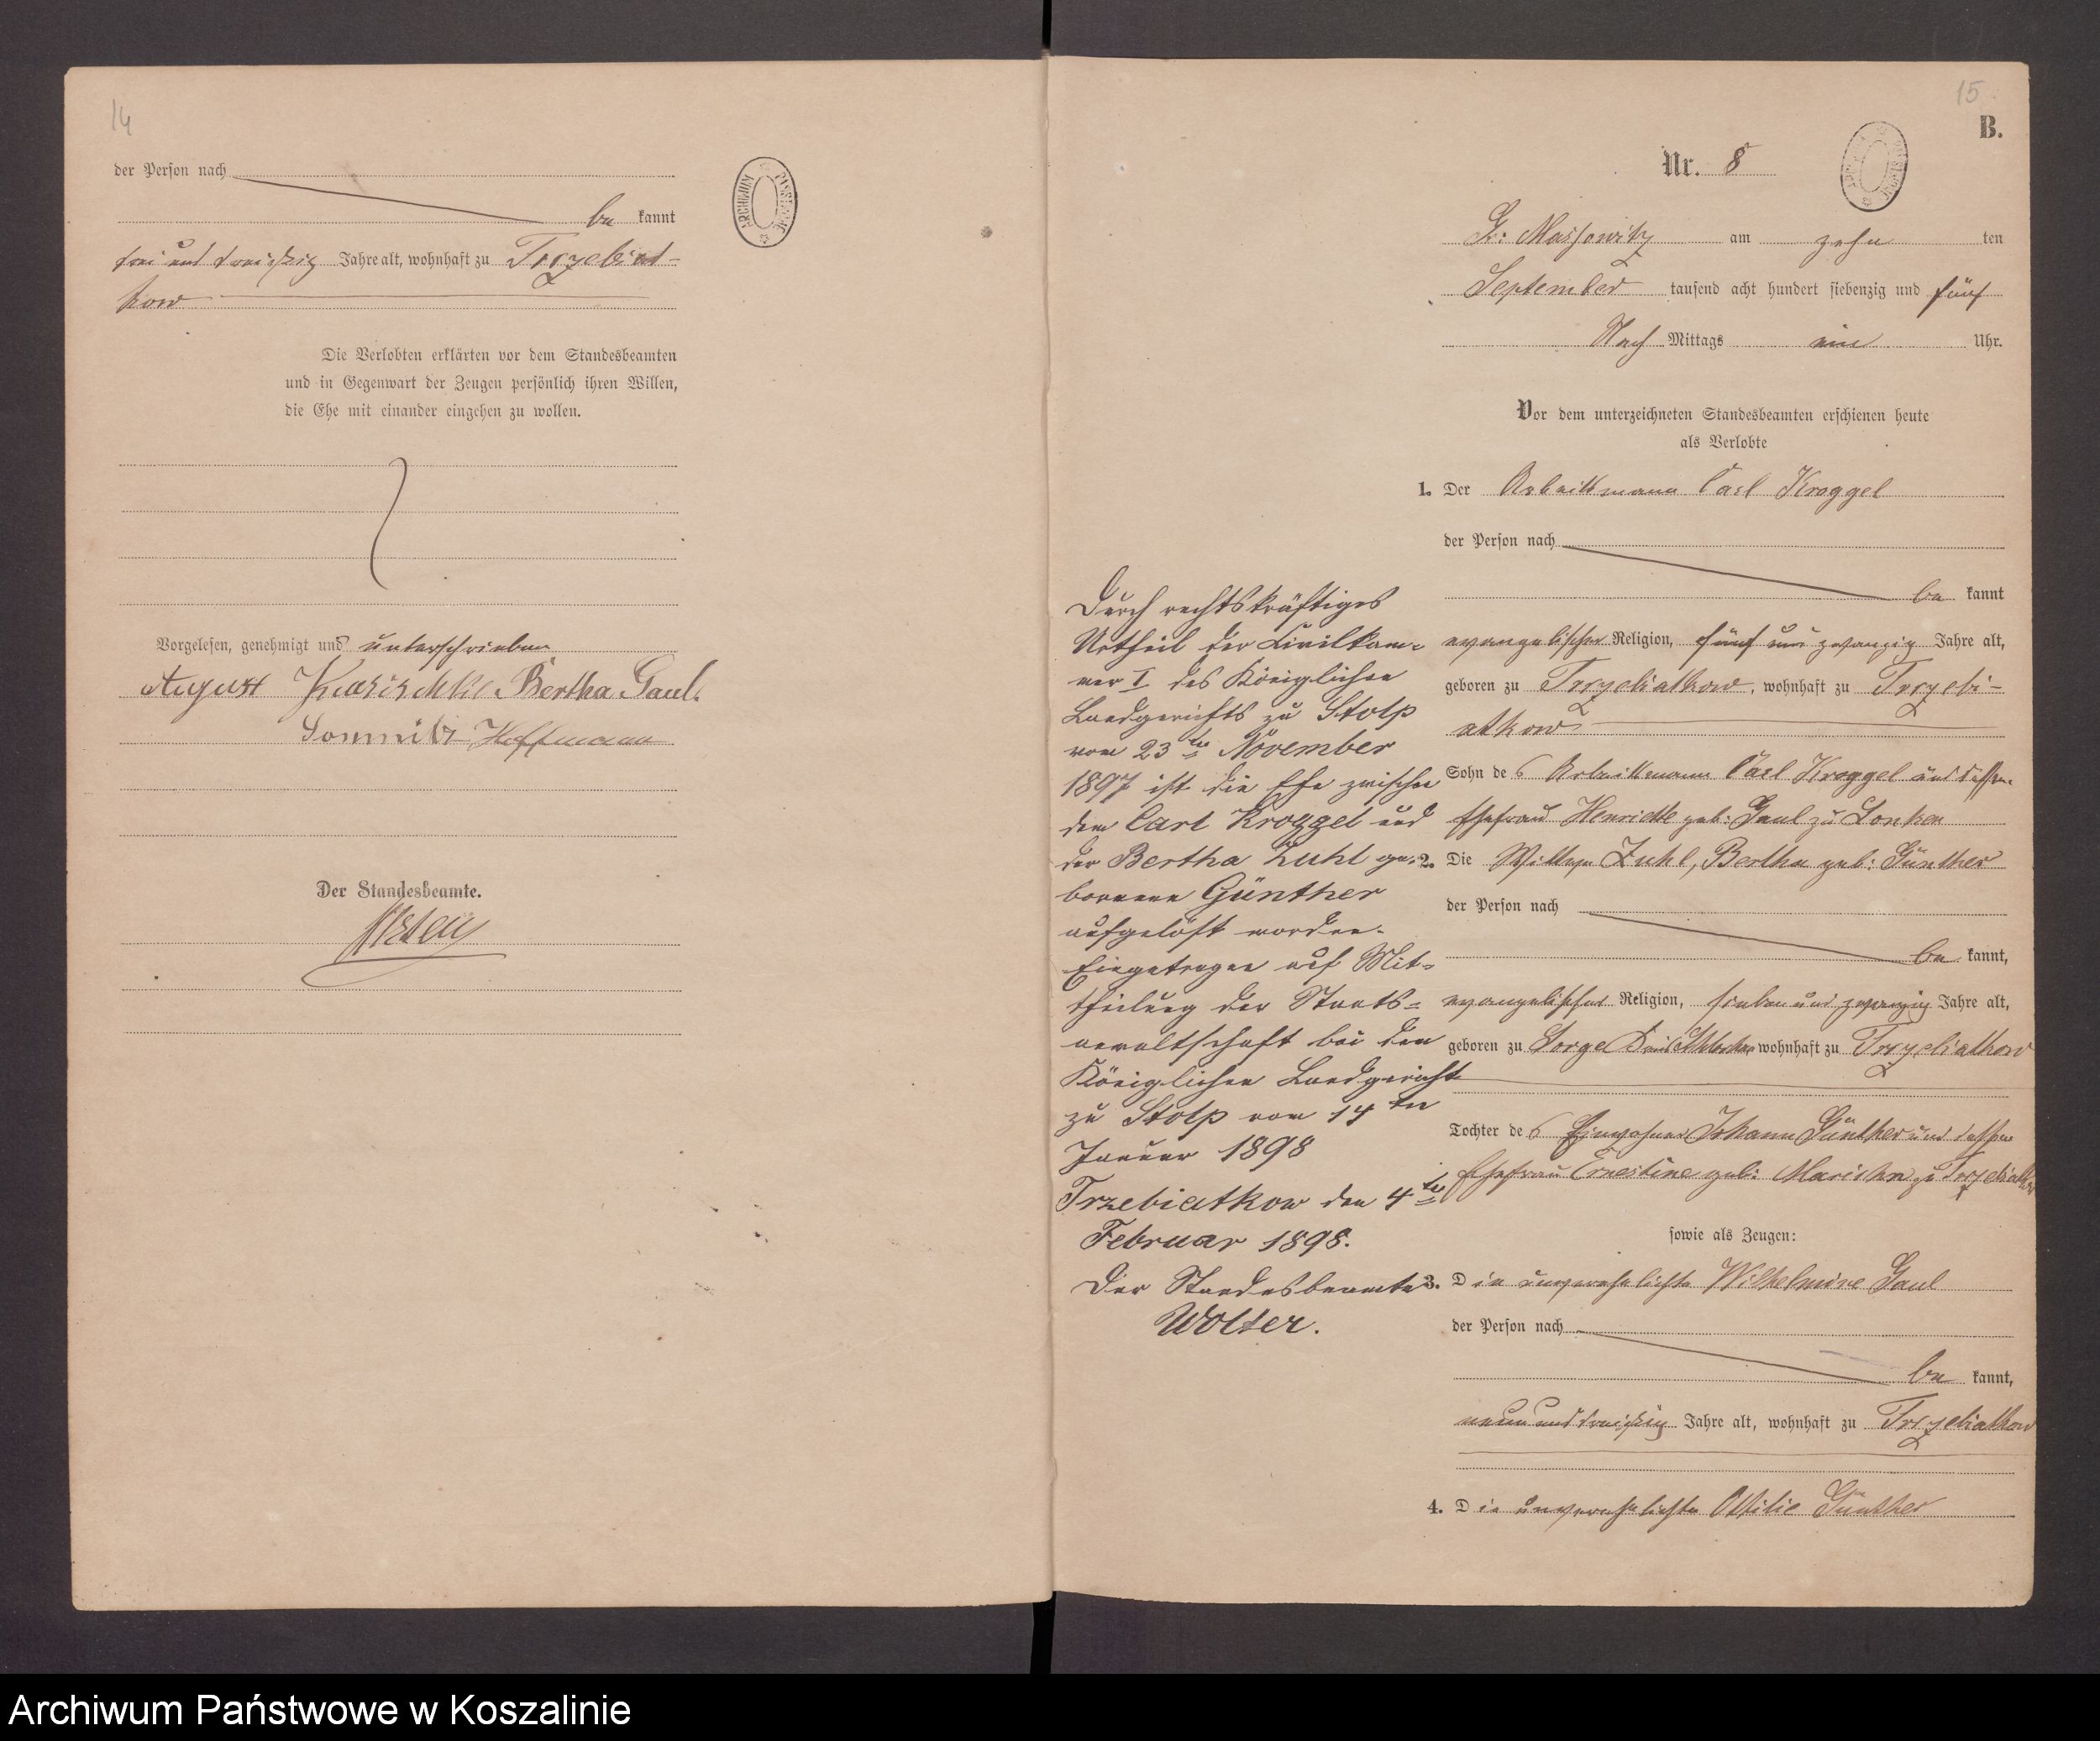 14
der Person nach
be kannt
drei und dreißig Jahre alt, wohnhaft zu Trzebiat-
kow
Die Verlobten erklärten vor dem Standesbeamten
und in Gegenwart der Zeugen persönlich ihren Willen,
die Ehe mit einander eingehen zu wollen.
Vorgelesen, genehmigt und unterschrieben
August Bertha Gaul.
Hoffmann
Der Standesbeamte.
ARCHIWUM PAŃSTWOWE
15.
B.
Nr. 8
Gr: Massowitz am zehn ten
September tausend acht hundert siebenzig und fünf
Nach Mittags ein Uhr.
Vor dem unterzeichneten Standesbeamten erschienen heute
als Verlobte
1. Der Arbeitsmann Carl Kroggel
der Person nach
be kannt
evangelischer Religion, fünf und zwanzig Jahre alt,
geboren zu Trzebiatkow, wohnhaft zu Trzebi-
atkow
Sohn des Arbeitsmann Carl Kroggel und dessen
Ehefrau Henriette geb: Gaul zu Lonken
2. Die Wittwe Zuhl, Bertha geb: Günther
der Person nach
be kannt,
evangelischer Religion, sieben und zwanzig Jahre alt,
geboren zu Sorge wohnhaft zu Trzebiatkow
Tochter des Einwohner Johann Günther und dessen
Ehefrau Ernestine geb: zu Trzebiatkow
sowie als Zeugen:
3. Die unverehelichte Wilhelmine Gaul
der Person nach
be kannt,
neun und dreißig Jahre alt, wohnhaft zu Trzebiatkow
4. Die unverehelichte Ottilie Günther
Durch rechtskräftiges
Urtheil der Civilkam-
mer I des Königlichen
Landgerichts zu Stolp
vom 23ten November
1897 ist die Ehe zwischen
dem Carl Kroggel und
der Bertha Zuhl ge-
borenen Günther
aufgelöst worden.
Eingetragen auf Mit-
theilung der Staats-
anwaltschaft bei dem
Königlichen Landgericht
zu Stolp vom 14ten
Januar 1898
Trzebiatkow den 4ten
Februar 1898.
Der Standesbeamte
Wolter.
Archiwum Państwowe w Koszalinie